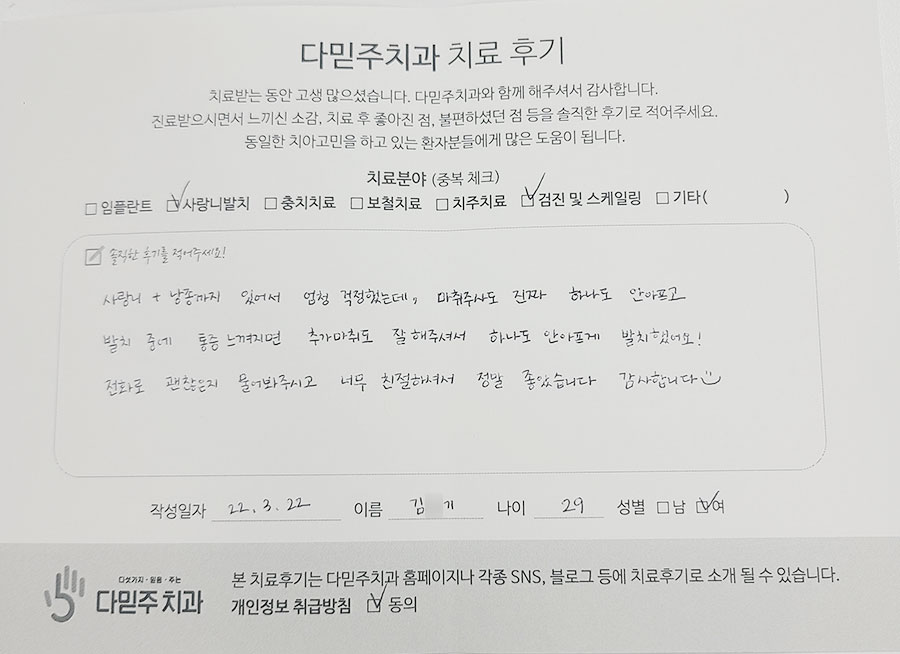 다믿주치과 치료 후기
치료받는 동안 고생 많으셨습니다. 다믿주치과와 함께 해주셔서 감사합니다.
진료받으시면서 느끼신 소감, 치료 후 좋아진 점, 불편하셨던 점 등을 솔직한 후기로 적어주세요.
동일한 치아고민을 하고 있는 환자분들에게 많은 도움이 됩니다.
치료분야 (중복 체크)
□ 임플란트 ☑ 사랑니발치 □ 충치치료 □ 보철치료 □ 치주치료 ☑ 검진 및 스케일링 □ 기타( )
솔직한 후기를 적어주세요!
사랑니 + 낭종까지 있어서 엄청 걱정했는데, 마취주사도 진짜 하나도 안아프고
발치 중에 통증 느껴지면 추가마취도 잘 해주셔서 하나도 안아프게 발치했어요!
전화로 괜찮은지 물어봐주시고 너무 친절하셔서 정말 좋았습니다 감사합니다
작성일자 22. 3. 22 이름 김 기 나이 29 성별 □ 남 ☑ 여
다섯가지·믿음·주는
다믿주치과
본 치료후기는 다믿주치과 홈페이지나 각종 SNS, 블로그 등에 치료후기로 소개 될 수 있습니다.
개인정보 취급방침 ☑ 동의